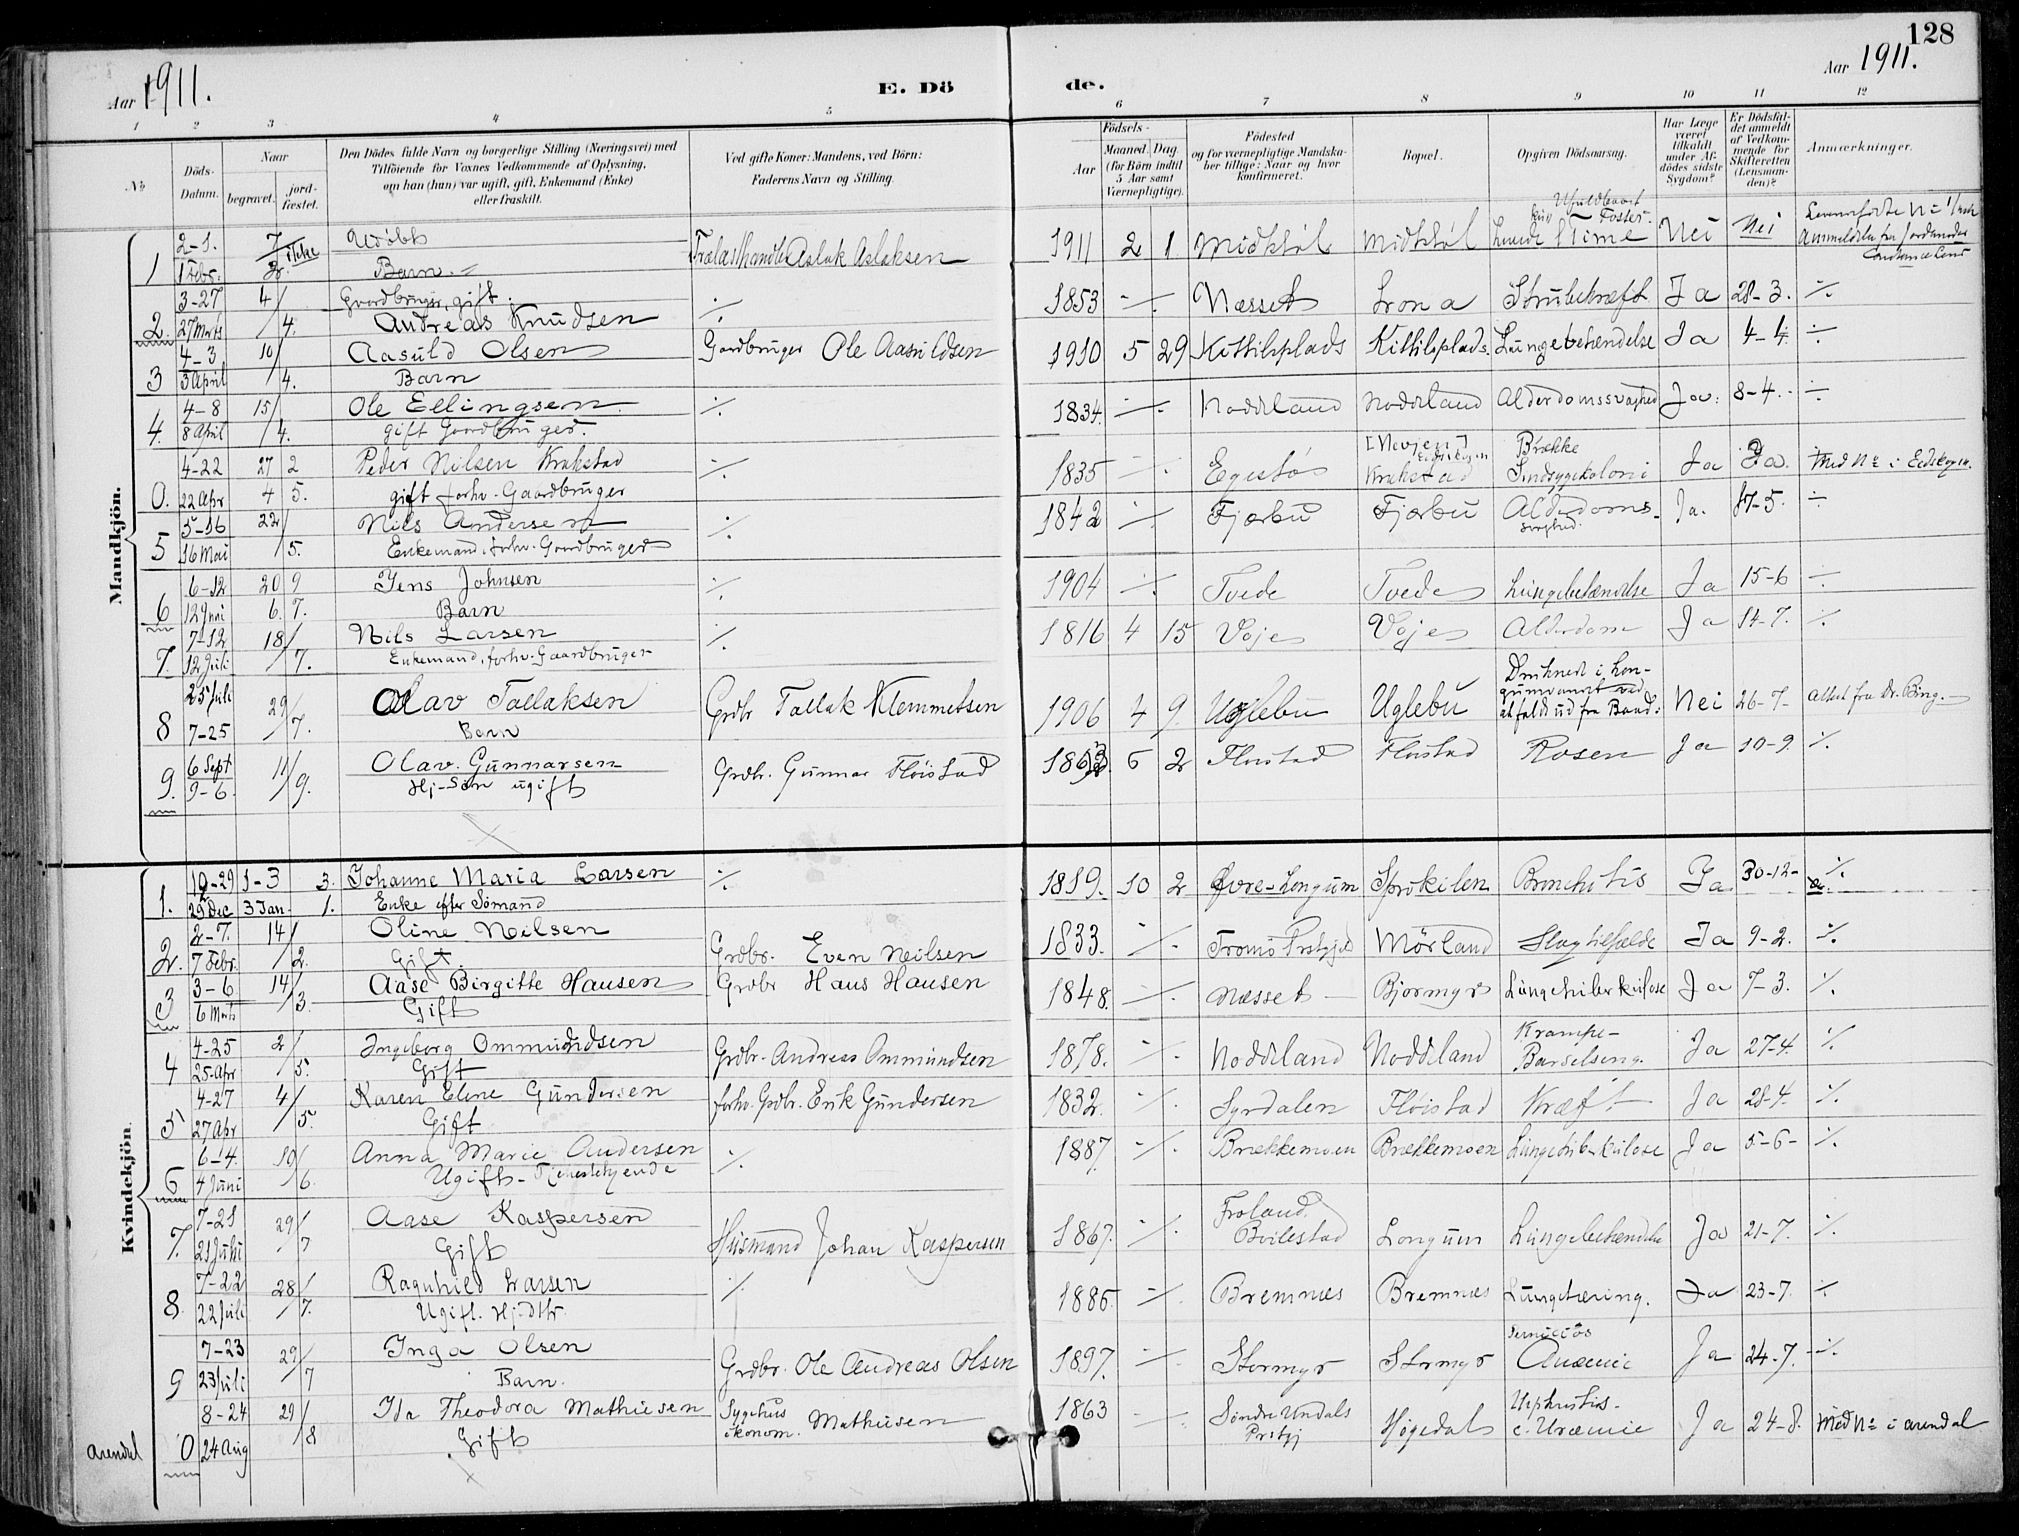 128
Aar 1911.
E. Dö
de.
Aar 1911.
1 2 3 4 5 6 7 8 9 10 11 12
No
Döds-Datum.
Naar
begravet.
jord-fæstet.
Den Dödes fulde Navn og borgerlige Stilling (Næringsvei) med
Tilföiende for Voxnes Vedkommende af Oplysning,
om han (hun) var ugift, gift, Enkemand (Enke)
eller fraskilt.
Ved gifte Koner: Mandens, ved Börn:
Faderens Navn og Stilling.
Födsels-
Aar
Maaned. Dag
(for Börn indtil
5 Aar samt
Værnepligtige).
Födested
og for værnepligtige Mandska-
ber tillige: Naar og hvor
konfirmeret.
Bopæl.
Opgiven Dödsaarsag.
Har Læge
været
tilkaldt
under Af-
dödes sidste
Sygdom?
Er Dödsfal-
det anmeldt
af Vedkom-
mende for
Skifteretten
(Lensman-
den)?
Anmærkninger.
Mandkjön.
1 2-1. 7 ikke Udöbt Trælasthandler Aslak Aslaksen 1911 2 1. Midtböl Midtböl Levede 1 Time Nei Nei
1 Febr. 2. Barn
3-27 4/ Gaardbruger, gift. ./. 1853 ./. Næsset Lrona Strubekræft Ja 28-3. ./.
2. 27 Marts /4. Andreas Knudsen
4-3 10/ Aasuld Olsen Gaardbruger Ole Aasuldsen 1910 5 29 Kittilsplads Kittilsplads. Lungebetændelse Ja 4-4. ./.
3 3 April /4. Barn
4-8 15/ Ole Ellingsen ./. 1834. ./. Noddeland Noddeland Alderdomssvaghed Ja: 8-4. ./.
4. 8 April /4. gift Gaardbruger.
4-22 27 2 Peder Nilsen Krakstad ./. 1835 ./. Egestö [Nevjen] Eidskogen Krakstad Brække Sindsygekoloni Ja Ja. Med No i Eidskogen.
0. 22 Apr 4 5. gift forhv. Gaardbruger
5-16 22/ Nils Andersen ./. 1842 ./. Fjærbu Fjærbu Alderdoms-svaghed. Ja. 17-5. ./.
5 16 Mai /5. Enkemand, forhv. Gaardbruger
6-12 20 9 Jens Johnsen ./. 1904 ./. Tvede Tvede Lungebetændelse Ja 15-6 ./.
6 12 Juni 6. 7. Barn
7-12 18/ Nils Larsen ./. 1816 4 15 Voje Voje Alderdom Ja 14-7. ./.
7. 12 Juli /7. Enkemand, forhv. Gaardbruger
25 Juli 29/ Olav Tallaksen Grdbr Tallak Klemmetsen 1906 4 9. Uglebu Uglebu Druknet i Lon-gumvandt ved at falde ud fra Baad. Nei 26-7- Attest fra Dr. Bing.
8 7-25 /7. Barn
6 Sept 11/ Olav Gunnarsen Grdbr. Gunnar Flöistad 1863 6 2 Flöistad Flöistad Rosen Ja 10-9. ./.
9. 9-6. /9. Hj-Sön ugift
Kvindekjön.
12-29 1-3 3. Johanne Maria Larsen ./. 1819. 10 2 Øvre-Longum Sprokilen Bronchitis Ja 30-12- ./.
1. 29 Dec 3 Jan. 1. Enke efter Sömand
2-7. 14/ Oline Neilsen Grdbr. Even Neilsen 1833. ./. Tromö Prstgjeld Mörland Slagtilfælde Ja 9-2. ./.
2. 7 Febr. /2. Gift.
3-6 14/ Aase Birgitte Hansen Grdbr Hans Hansen 1848. ./. Næsset Bjormyr Lungetuberkulose Ja 7-3. ./.
3 6 Marts /3. Gift
4-25 2/ Ingeborg Ommundsen Grdbr. Andreas Ommundsen 1878. ./. Noddeland Noddeland Krampe-Barselseng. Ja 27-4. ./.
4 25 Apr /5. Gift
4-27 4/ Karen Eline Gundersen forhv. Grdbr. Erik Gundersen 1832. ./. Syrdalen Flöistad Kræft Ja 28-4. ./.
5 27 Apr /5. Gift
6-4. 10/ Anna Marie Andersen ./. 1887. ./. Brækkemoen Brækkemoen Lungetuberkulose Ja 5-6- ./.
6 4 Juni /6. Ugift- Tjenestepige
7-21 29/ Aase Kaspersen Husmand Johan Kaspersen 1867. ./. Froland. Bvilestad Longum Lungebetændelse Ja 21-7. ./.
7. 21 Juli /7 Gift
7-22 28/ Ragnhild Larsen ./. 1885. ./. Bremnæs Bremnæs Lungetæring. Ja 23-7. ./.
8. 22 Juli /7. Ugift. Hj.dtr.
7-23 29/ Inga Olsen Grdbr. Ole Andreas Olsen 1897. ./. Stormyr Stormyr Perniciös Anæmie Ja 24-7. ./.
9 23 Juli /7 Barn.
8-24 29/ Ida Theodora Mathiesen Sygehusökonom. Mathiesen 1863 ./. Söndre Undals Prstgj Högedal Nephritis c. Uræmie Ja 24-8. Med No i Arendal
Arendal 0 24 Aug /8 Gift